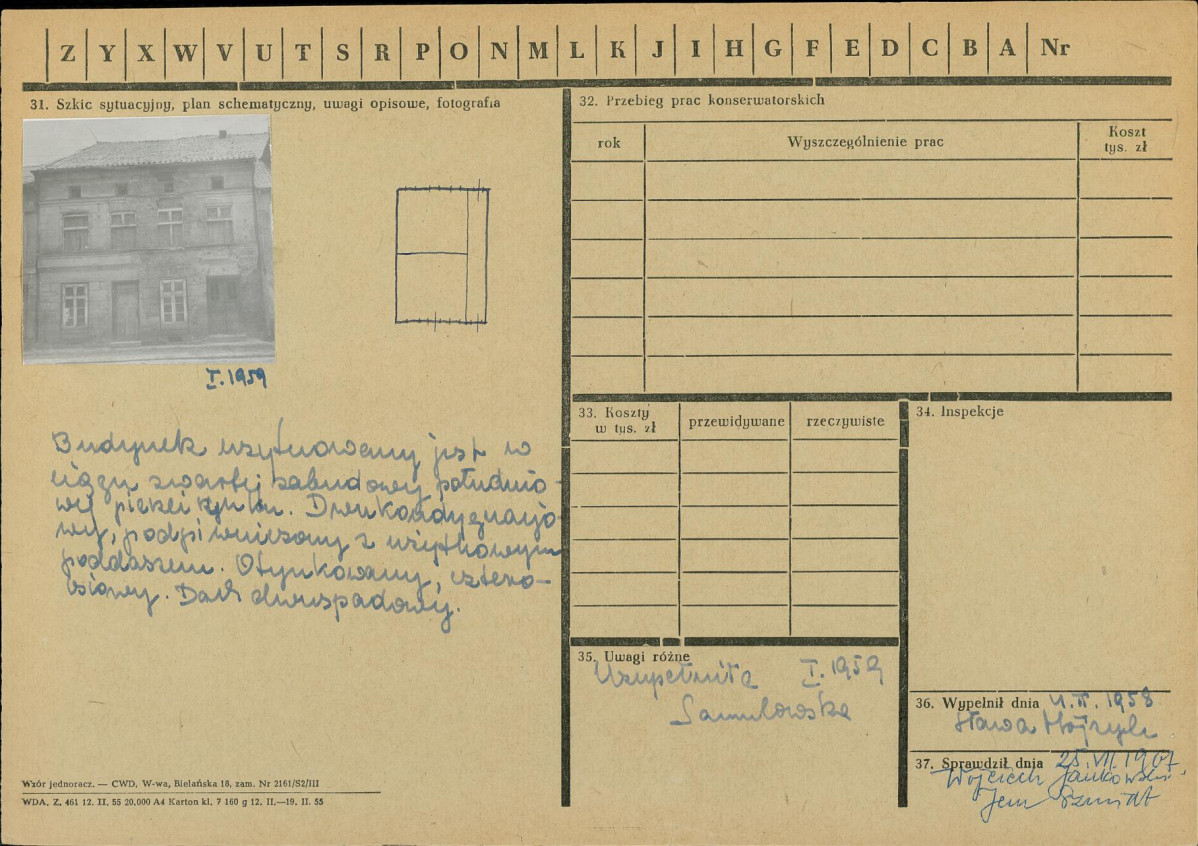 Z Y X W V U T S R P O N M L K J I H G F E D C B A Nr
31. Szkic sytuacyjny, plan schematyczny, uwagi opisowe, fotografia
I. 1959
Budynek usytuowany jest w
ciągu zwartej zabudowy południo-
wej pierzei rynku. Dwukondygnacjo-
wy, podpiwniczony z użytkowym
poddaszem. Otynkowany, cztero-
osiowy. Dach dwuspadowy.
Wzór jednoracz. — CWD, W-wa, Bielańska 18, zam. Nr 2161/S2/III
WDA. Z. 461 12. II. 55 20.000 A4 Karton kl. 7 160 g 12. II.—19. II. 55
32. Przebieg prac konserwatorskich
rok
Wyszczególnienie prac
Koszt
tys. zł
33. Koszty
w tys. zł
przewidywane
rzeczywiste
34. Inspekcje
35. Uwagi różne
Uzupełniła I. 1959
Samulowska
36. Wypełnił dnia 1958
Sława
37. Sprawdził dnia 25. VII.
Wojciech Jankowski
Szmidt